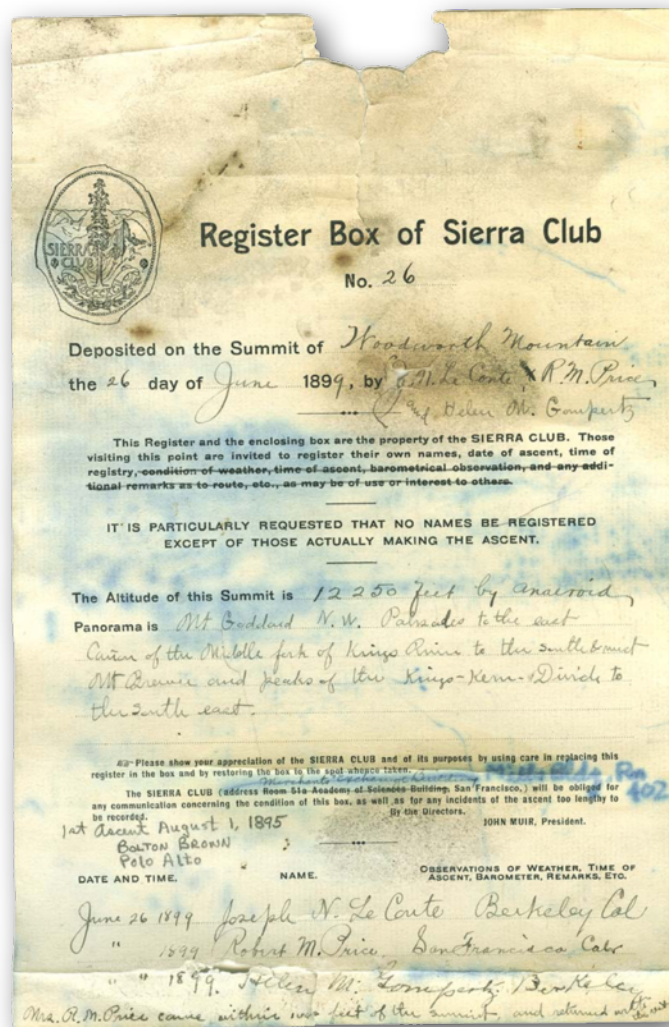 SIERRA
CLUB
Register Box of Sierra Club
No. 26
Deposited on the Summit of Woodworth Mountain
the 26 day of June 1899, by J. N. Le Conte, R. M. Price
and Helen M. Gompertz
This Register and the enclosing box are the property of the SIERRA CLUB. Those
visiting this point are invited to register their own names, date of ascent, time of
registry, condition of weather, time of ascent, barometrical observation, and any addi-
tional remarks as to route, etc., as may be of use or interest to others.
IT IS PARTICULARLY REQUESTED THAT NO NAMES BE REGISTERED
EXCEPT OF THOSE ACTUALLY MAKING THE ASCENT.
The Altitude of this Summit is 12250 feet by aneroid
Panorama is Mt Goddard N.W. Palisades to the east
Cañon of the Middle fork of Kings River to the south & west
Mt Brewer and peaks of the Kings-Kern-Divide to
the south east.
Please show your appreciation of the SIERRA CLUB and of its purposes by using care in replacing this
register in the box and by restoring the box to the spot whence taken.
Merchants Exchange Building Mills Bldg, Rm
402
The SIERRA CLUB (address Room 51a Academy of Sciences Building, San Francisco,) will be obliged for
any communication concerning the condition of this box, as well as for any incidents of the ascent too lengthy to
be recorded. By the Directors.
JOHN MUIR, President.
1st Ascent August 1, 1895
BOLTON BROWN
Polo Alto
DATE AND TIME. NAME. OBSERVATIONS OF WEATHER, TIME OF
ASCENT, BAROMETER, REMARKS, ETC.
June 26 1899 Joseph N. Le Conte Berkeley Cal
" 1899 Robert M. Price San Francisco
" " 1899. Helen M. Gompertz
Mrs. R. M. Price came within feet of the summit, and returned